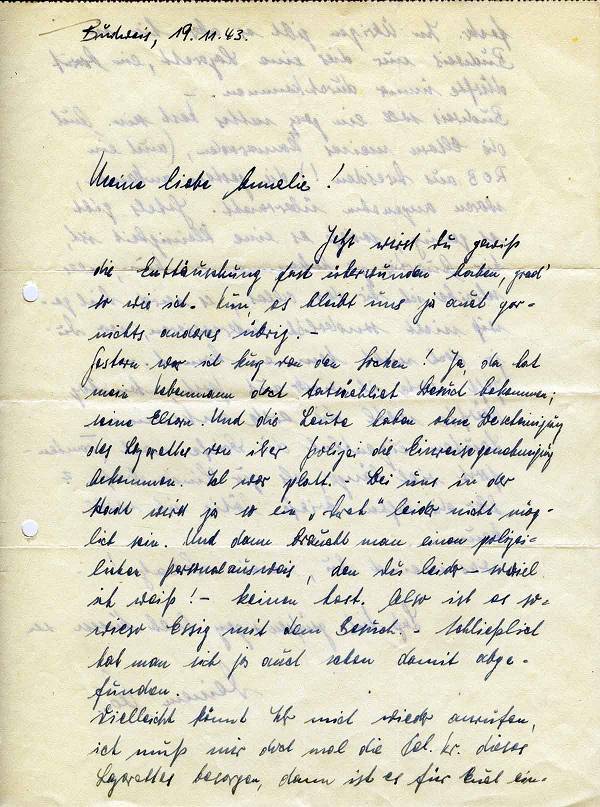 Budweis, 19.11.43.
Meine liebe Annelie!
Jetzt wirst Du gewiß
die Enttäuschung fast überwunden haben, grad'
so wie ich. Nun, es bleibt uns ja auch gar-
nichts anderes übrig. –
Gestern war ich kurz von den Socken! Ja, da hat
mein Nebenmann doch tatsächlich Besuch bekommen;
seine Eltern. Und die Leute haben ohne Bescheinigung
des Lazarettes von ihrer Polizei die Einreisegenehmigung
bekommen. Ich war platt. – Bei uns in der
Stadt wird ja so ein leider nicht mög-
lich sein. Und dann braucht man einen polizei-
lichen Personalausweis, den Du leider – soviel
ich weiß! – keinen hast. Also ist es so-
wieso Essig mit dem Besuch. – Schließlich
hat man sich ja auch schon damit abge-
funden.
Vielleicht könnt Ihr mich wieder anrufen,
ich muß mir doch mal die Tel. Nr. dieses
Lazarettes besorgen, dann ist es für Euch ein-